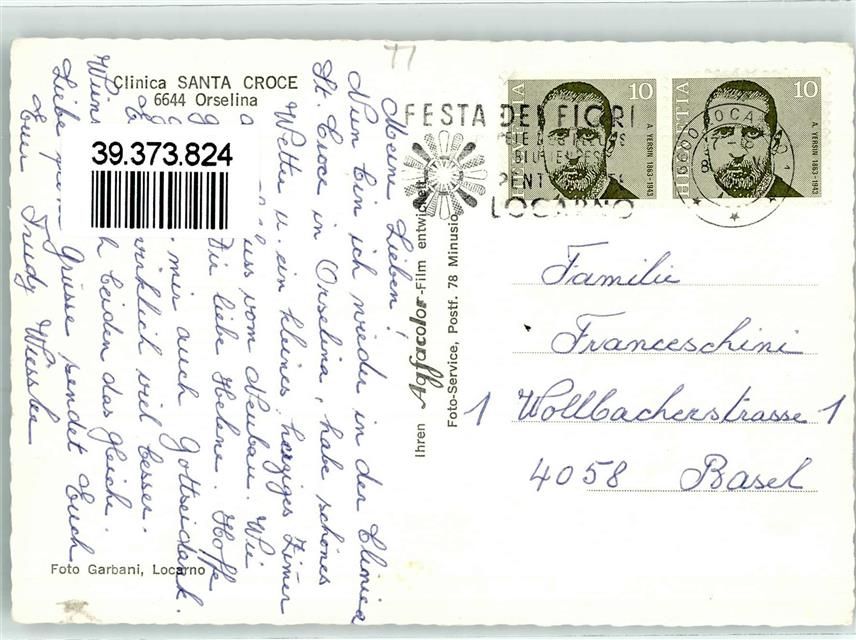 Clinica SANTA CROCE
6644 Orselina
39.373.824
Meine Lieben!
Nun bin ich wieder in der Clinica
St. Croce in Orselina, habe schönes
Wetter u. ein kleines, herziges Zimer
vom Neubau. Wie
Die liebe Helene. Hoffe
mir auch Gottseidank.
wirklich viel besser.
beiden das gleich.
Grüsse sendet Euch
Euer Trudy Wiessler
Foto Garbani, Locarno
Ihren Agfacolor-Film entwickelt
Foto-Service, Postf. 78 Minusio
FESTA DEI FIORI
LOCARNO
HELVETIA 10
A. YERSIN 1863-1943
HELVETIA 10
A. YERSIN 1863-1943
Familie
Franceschini
1 Wollbacherstrasse 1
4058 Basel